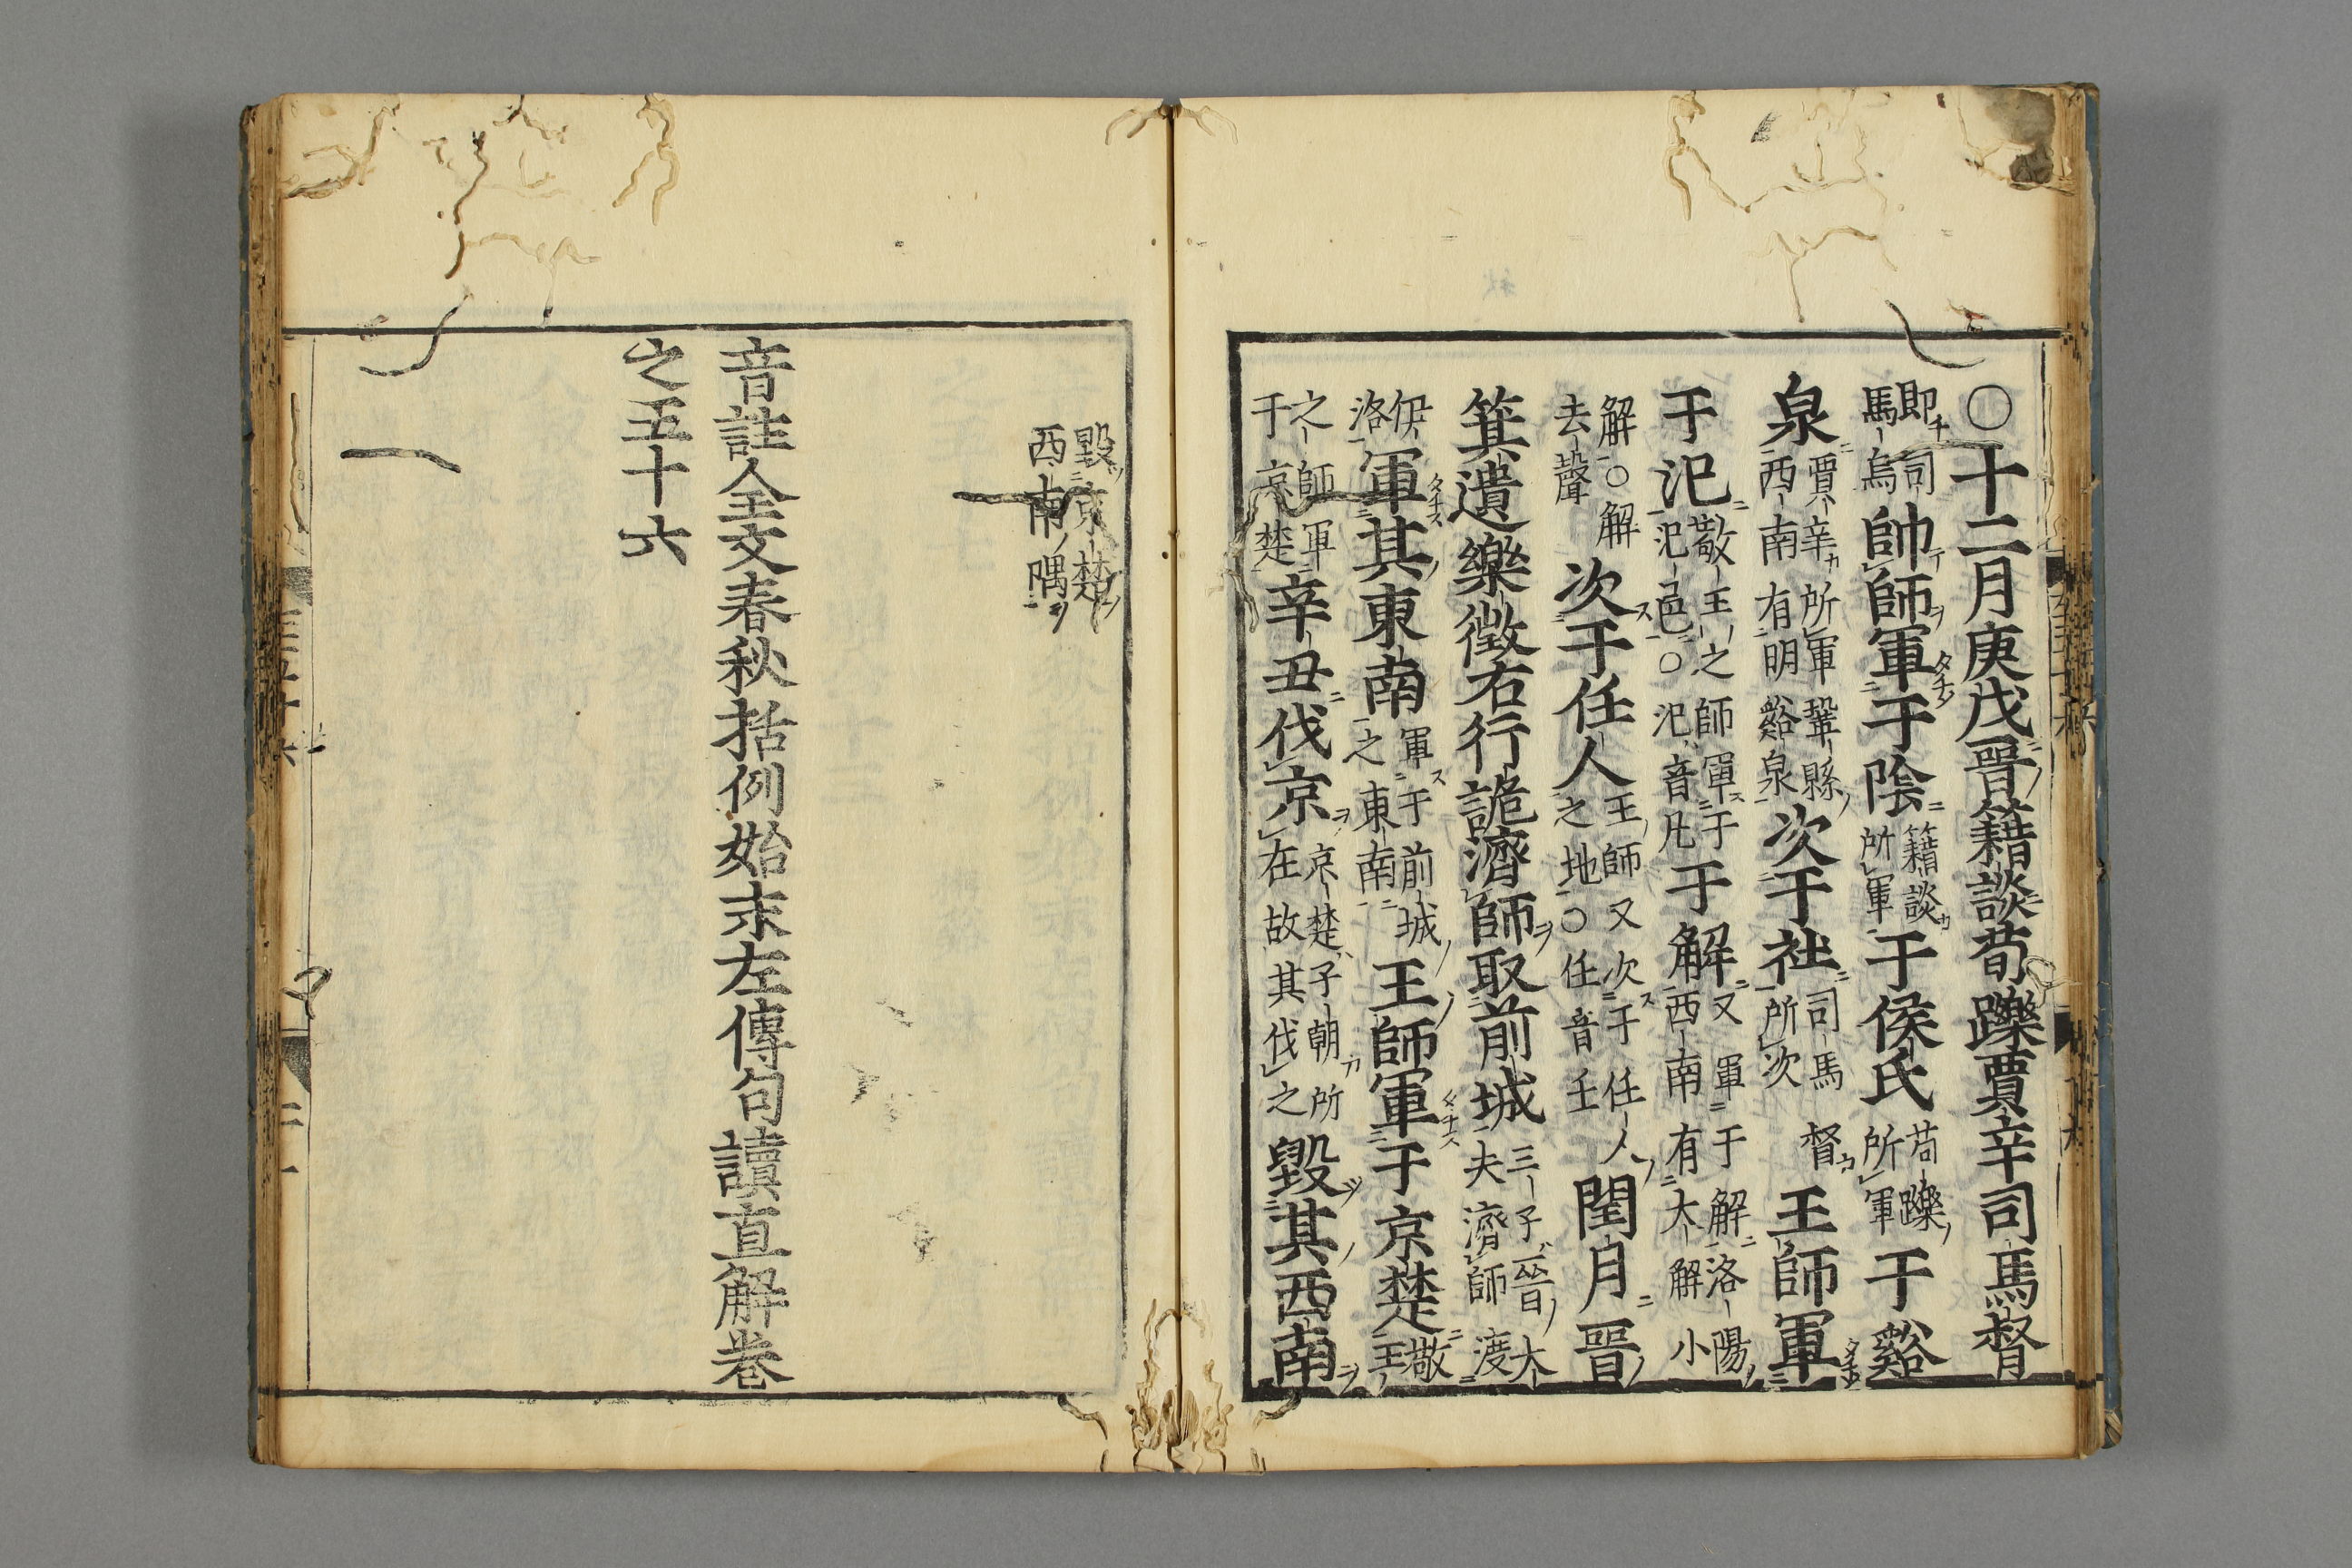 〇十二月庚戌晉籍談荀躒賈辛司馬督
即司馬烏帥師軍于陰籍談所軍于侯氏荀躒所軍于谿
泉賈辛所軍鞏縣西南有明谿泉次于社司馬督所次王師軍
于氾敬王之師軍于氾邑〇氾音凡于解又軍于解洛陽西南有大解小
解〇解去聲次于任人王師又次于任人之地〇任音壬閏月晉
箕遺樂徵右行詭濟師取前城三子晉大夫濟師渡
伊洛軍其東南軍于前城之東南王師軍于京楚敬王
之師軍于京楚辛丑伐京京楚子朝所在故其伐之毀其西南
毀京楚西南隅
音註全文春秋括例始末左傳句讀直解卷
之五十六